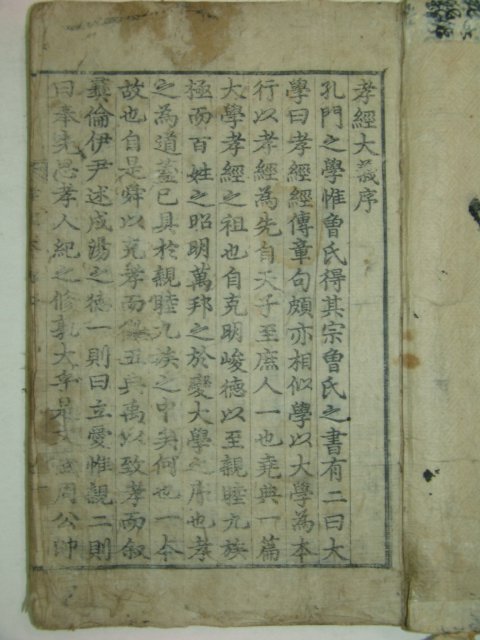 孝經大義序
孔門之學惟魯氏得其宗魯氏之書有二曰大
學曰孝經經傳章句頗亦相似學以大學為本
行以孝經為先自天子至庶人一也堯典一篇
大學孝經之祖也自克明峻德以至親睦九族
極而百姓之昭明萬邦之於變大學之序也孝
之為道蓋已具於親睦九族之中矣何也一本
故也自是舜以克孝而徽五典禹以致孝而叙
彝倫伊尹述成湯之德一則曰立愛惟親二則
曰奉先思孝人紀之修孰大於是 周公帥